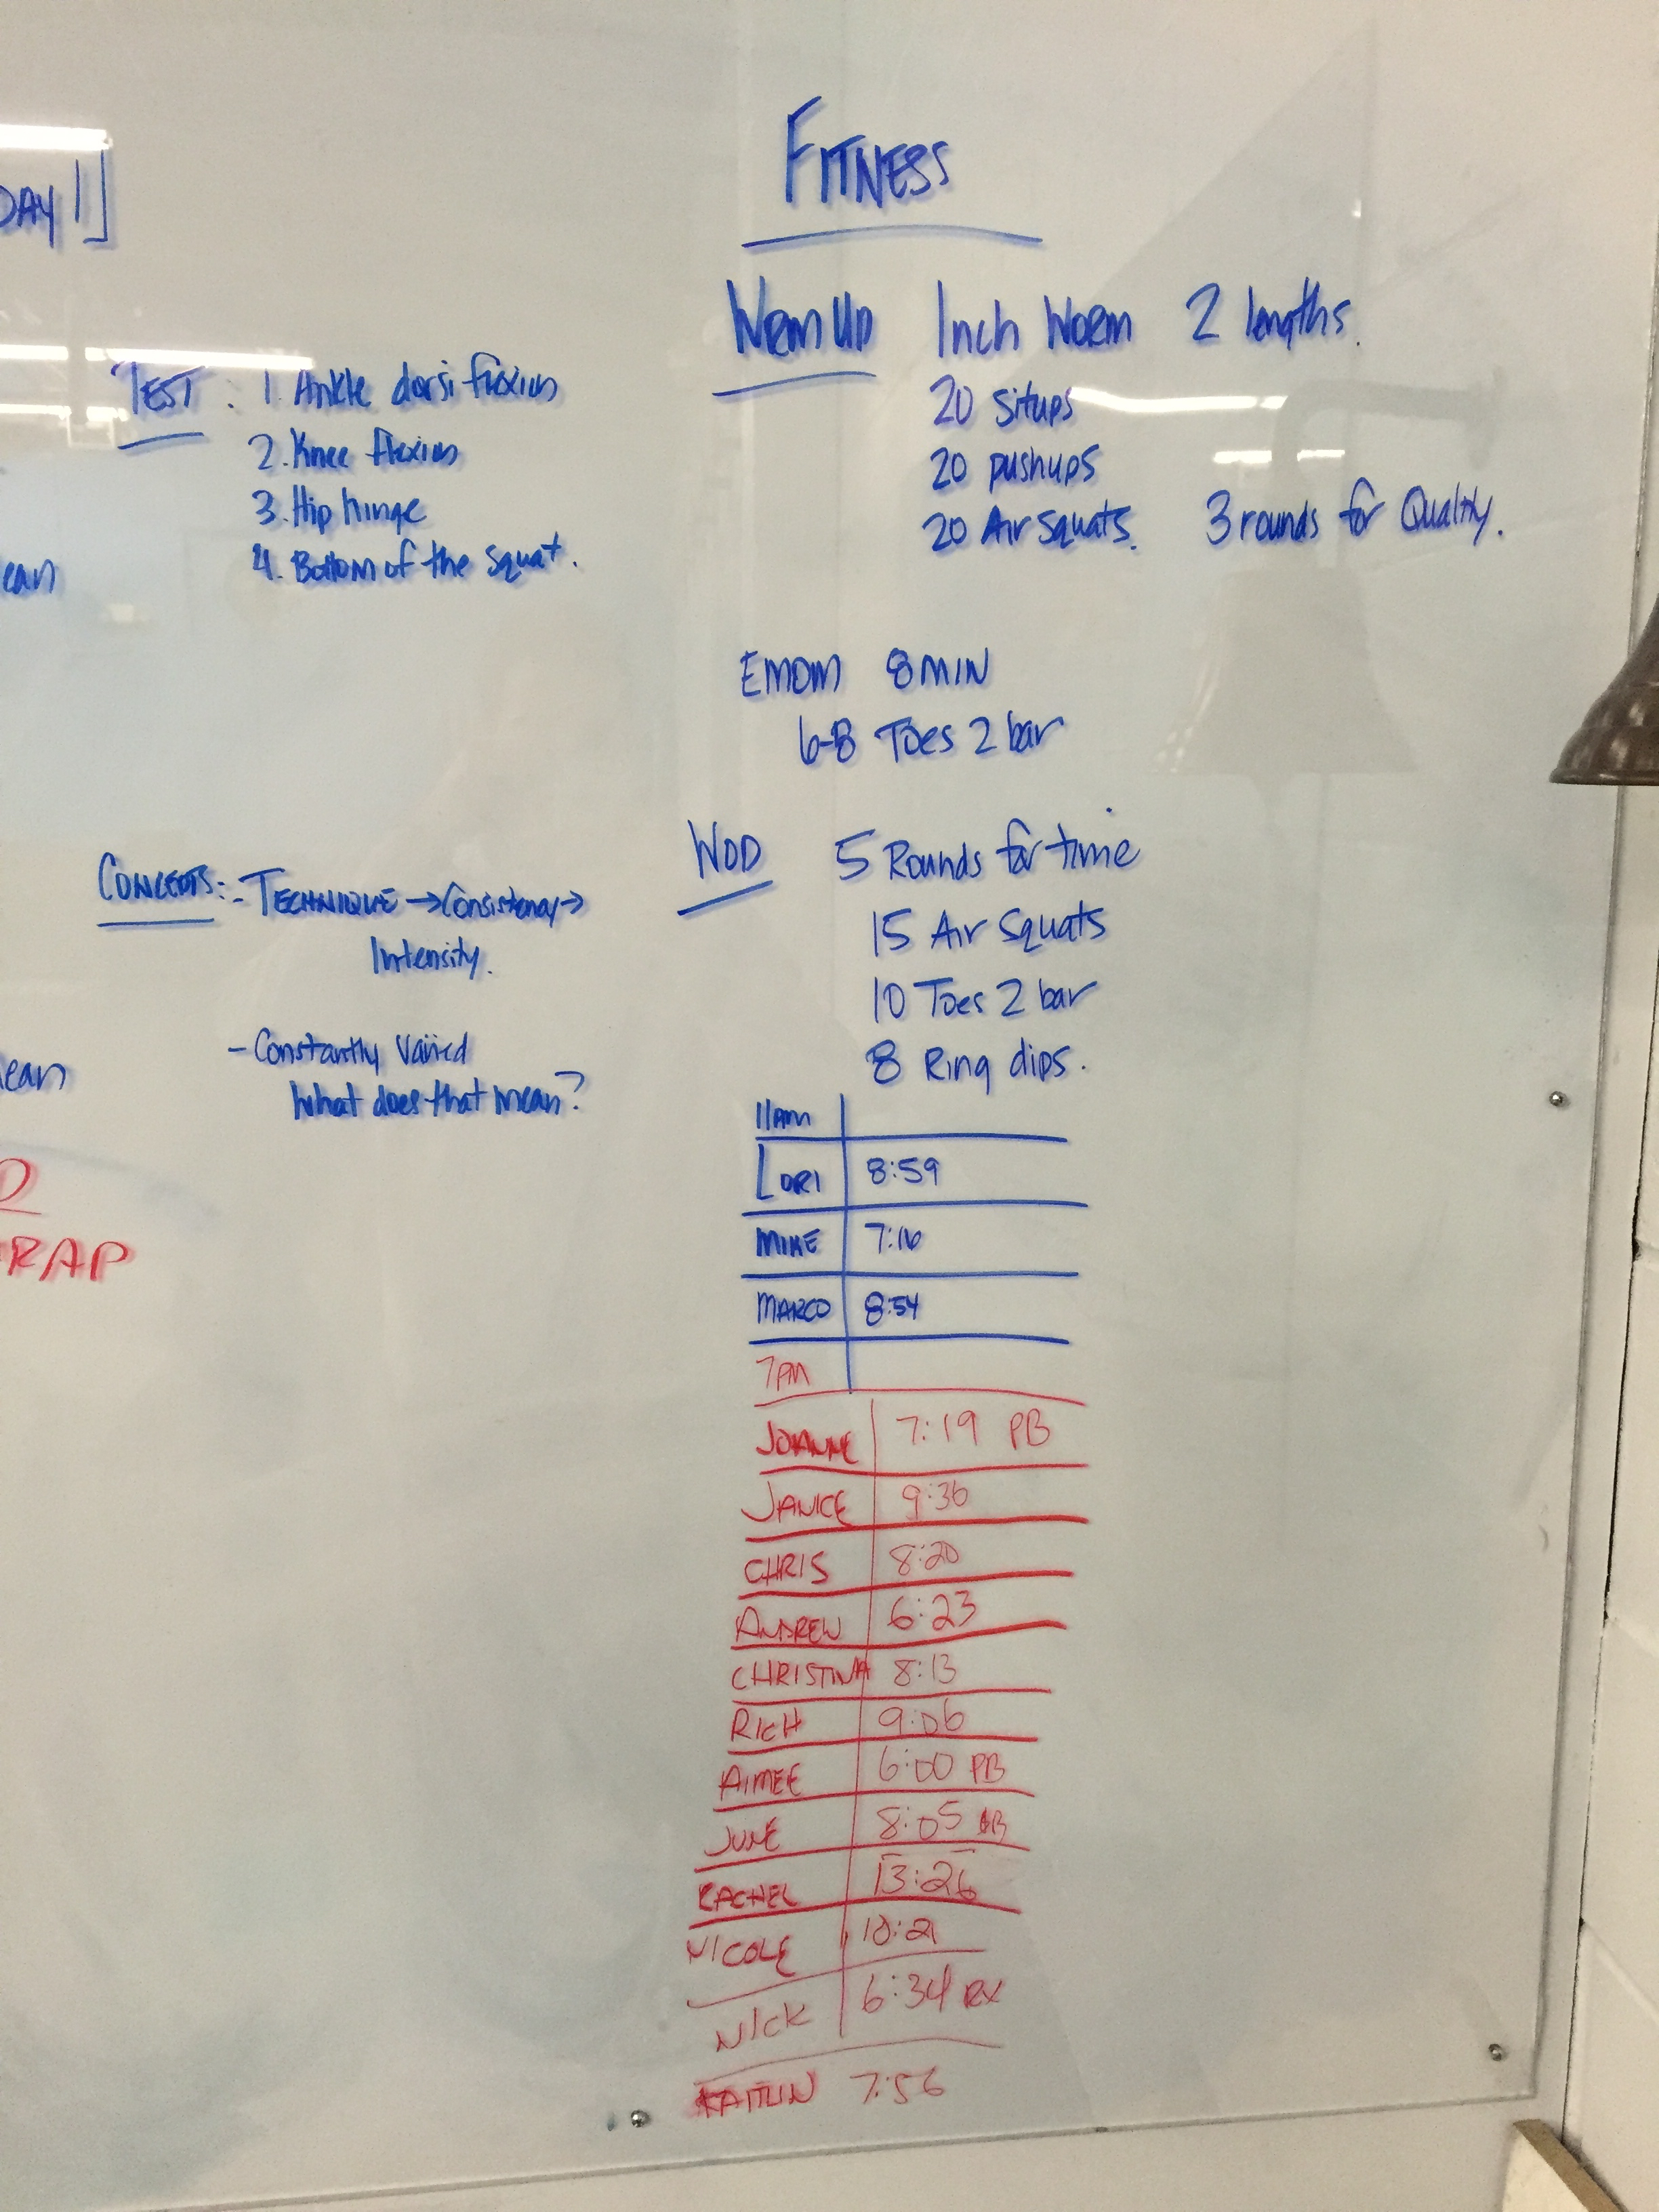 DAY 1]
TEST : 1. Ankle dorsi flexion
2. Knee flexion
3. Hip hinge
4. Bottom of the Squat.
ean
CONCEPTS: - TECHNIQUE → Consistency →
Intensity.
- Constantly Varied
What does that mean?
ean
RAP
FITNESS
Warm Up Inch Worm 2 lengths.
20 Situps
20 pushups
20 Air Squats. 3 rounds for Quality.
EMOM 8 MIN
6-8 Toes 2 bar
WOD 5 Rounds for time
15 Air Squats
10 Toes 2 bar
8 Ring dips.
11AM
LORI 8:59
MIKE 7:16
MARCO 8:54
7PM
JOANNE 7:19 PB
JANICE 9:36
CHRIS 8:20
ANDREW 6:23
CHRISTINA 8:13
RICH 9:06
AIMEE 6:00 PB
JUNE 8:05
RACHEL 13:26
NICOLE 10:21
NICK 6:34 RX
KAITLIN 7:56